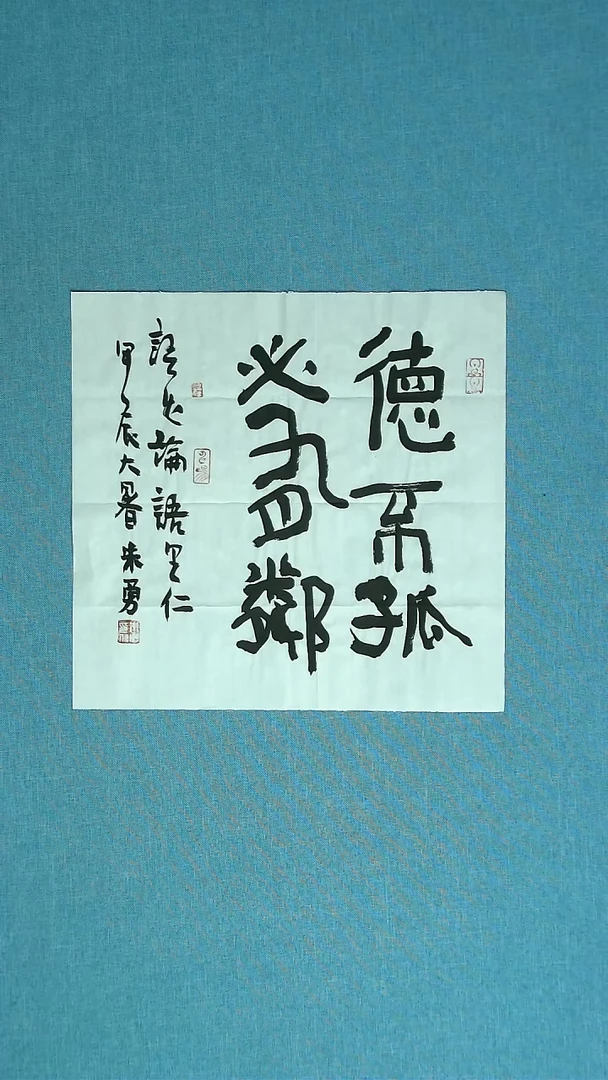 德不孤
必有鄰
語出論語里仁
甲辰大暑朱勇